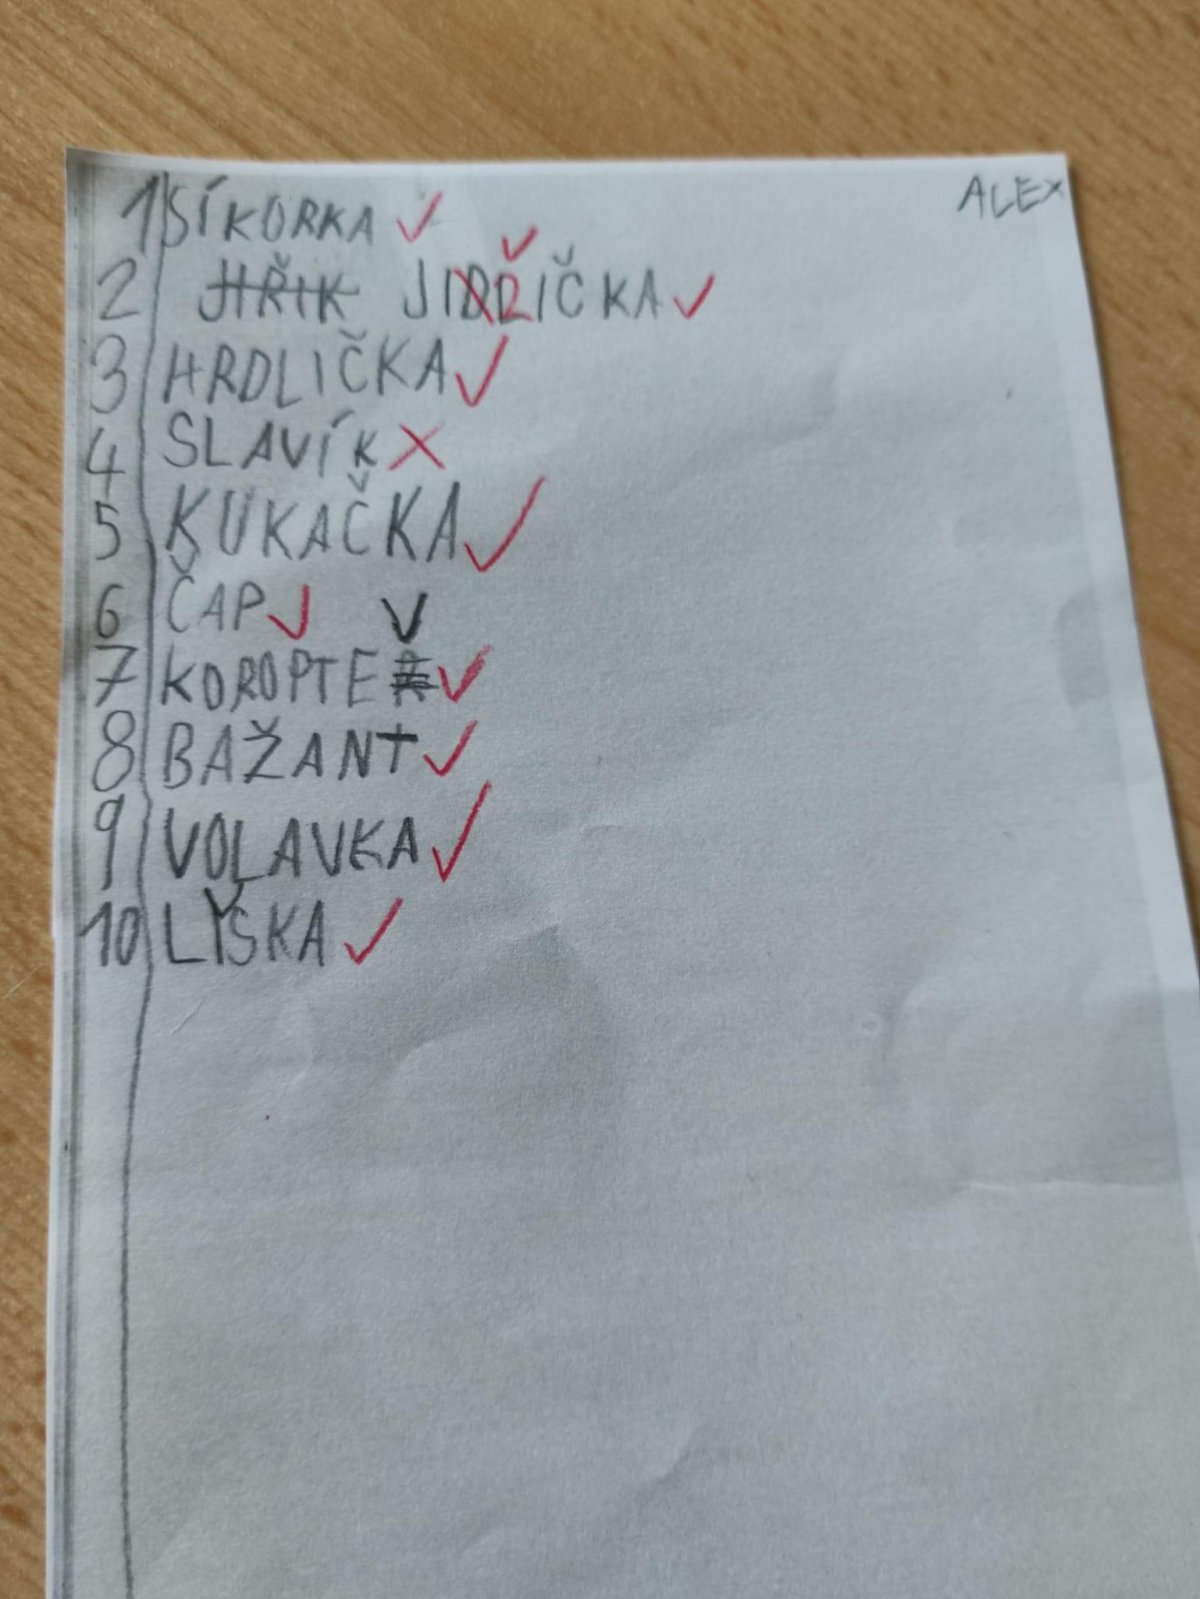 ALEX
1 SÍKORKA ✓
2 JIŘIK JIŘIČKA ✓
3 HRDLIČKA ✓
4 SLAVÍK X
5 KUKAČKA ✓
6 ČAP ✓
7 KOROPTEŘ ✓
8 BAŽANT ✓
9 VOLAVKA ✓
10 LYSKA ✓